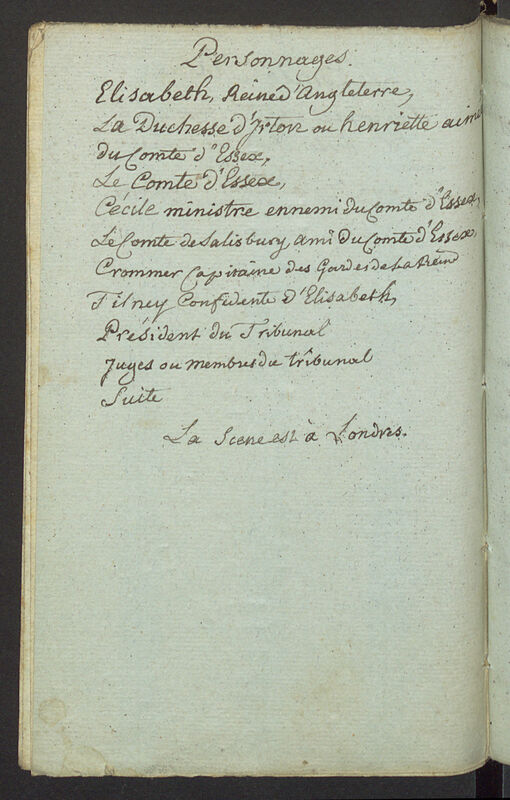 Personnages.
Elisabeth, Reine d'Angleterre,
La Duchesse d'Irton ou henriette aimée
du Comte d'Essex,
Le Comte d'Essex,
Cécile ministre ennemi du Comte d'Essex,
Le Comte de Salisbury, ami du Comte d'Essex,
Crommer Capitaine des Gardes de La Reine
Tilney Confidente d'Elisabeth,
Président du Tribunal
Juges ou membres du tribunal
Suite
La Scene est à Londres.